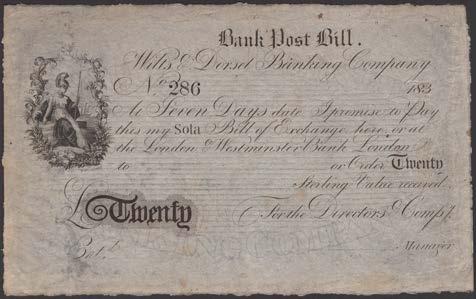 Bank Post Bill.
Wilts & Dorset Banking Company
No. 286 183
At Seven Days date I promise to Pay
this my Sola Bill of Exchange here, or at
the London & Westminster Bank London
to or Order Twenty
Sterling Value received
£ Twenty For the Directors & Compy.
Manager